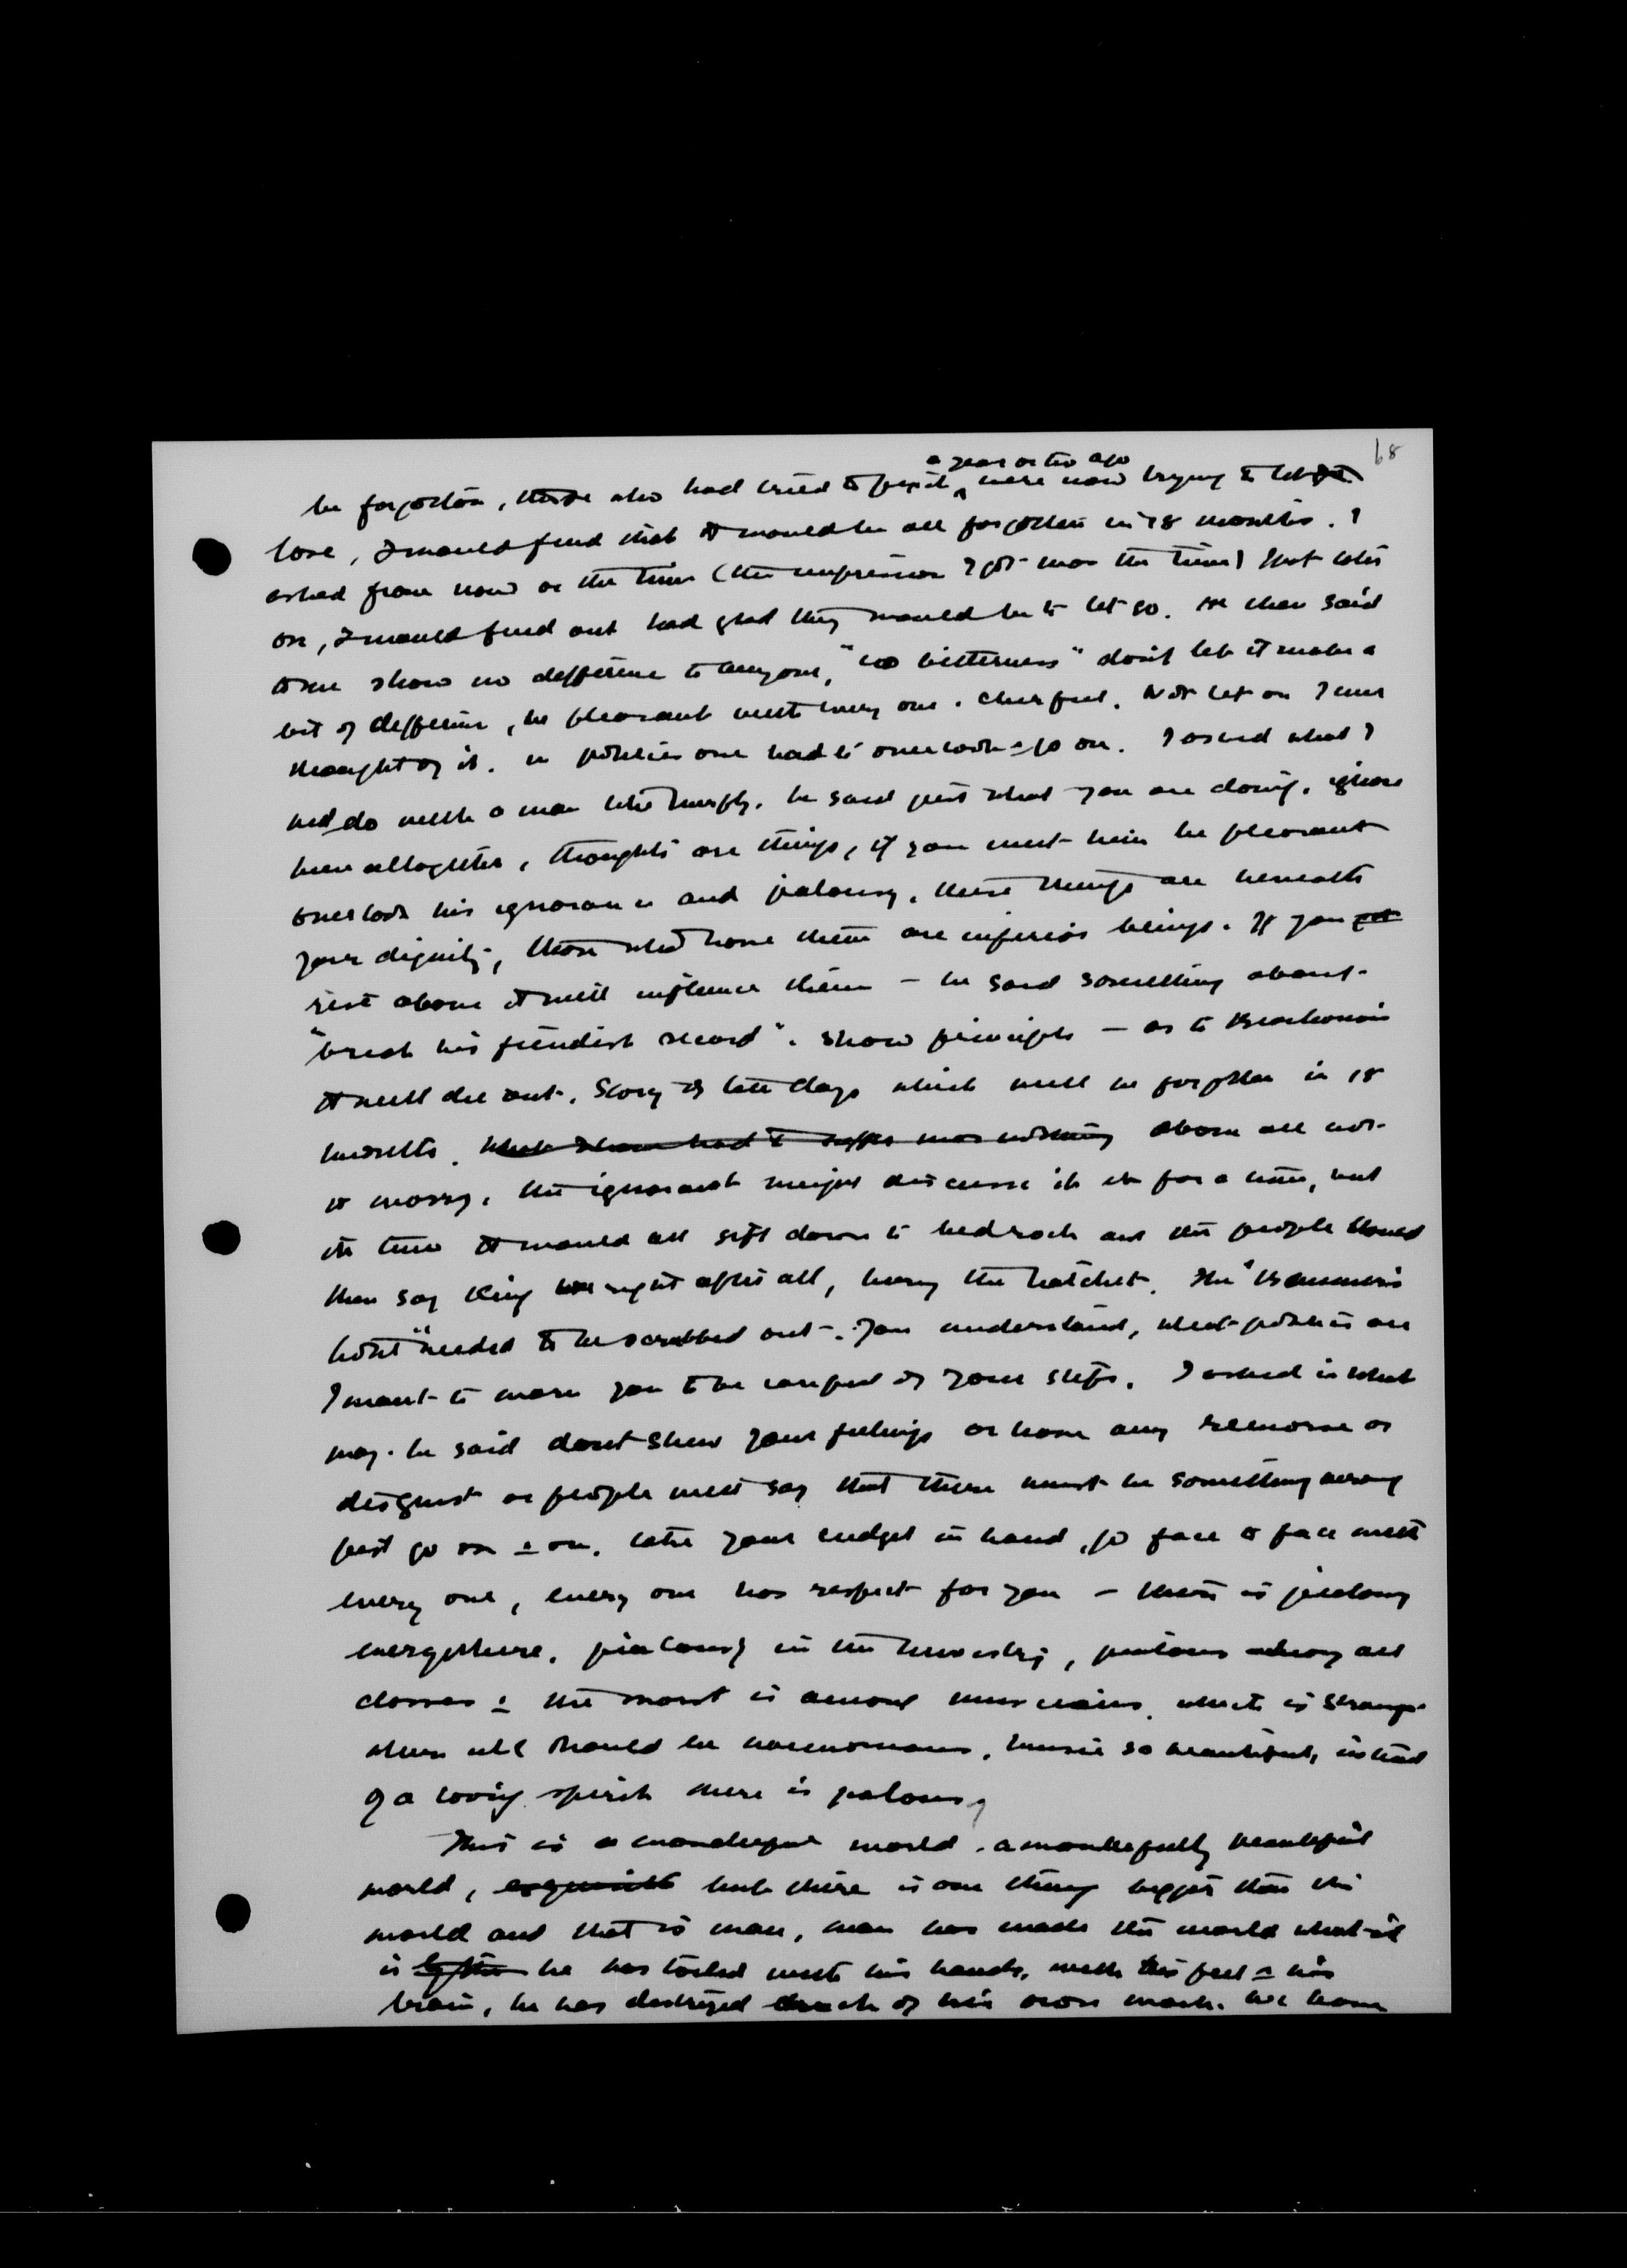 68
a year or two ago
be forgotten, those who had tried to were now trying to let
lose, I would find that it would be all forgotten in 18 months. I
asked from now or the time (the impression I got was the time) that later
on, I would find out how glad they would be to let go. He then said
to me show no difference to anyone, "no bitterness" don't let it make a
bit of difference, be pleasant with every one. cheerful. Not let on I ever
thought of it. in politics one had to overlook & go on. I asked what I
do with a man like Murphy. he said just what you are doing, ignore
him altogether, thoughts are things, if you meet him be pleasant
overlook his ignorance and jealousy, these things are beneath
your dignity, those who have them are inferior beings. If you
rise above it will influence them – he said something about
"break his fiendish record". show principle – as to Beauharnois
it will die out. Story of late days which will be forgotten in 18
months. What I have had to suffer was nothing above all not
to worry. the ignorant might discuss it for a time, but
in time it would all sift down to bedrock and the people would
then say King was right after all, bury the hatchet. The
needed to be scrubbed out. You understand, what politics are
I want to warn you to be careful of your steps. I asked in what
way. he said dont show your feelings or have any remorse or
disgust or people will say that there must be something wrong
just go on & on. take your cudgel in hand, go face to face with
every one, every one has respect for you – there is jealousy
everywhere. jealousy in the ministry, jealousy among all
classes & the worst is among musicians. which is strange
when all should be harmonious. music so beautiful, instead
of a loving spirit there is jealousy
This is a wonderful world. a wonderfully beautiful
world, exquisite but there is one thing bigger than this
world and that is man, man has made the world what it
is he has toiled with his hands, with his feet & his
brain, he has destroyed much of his own work. We have